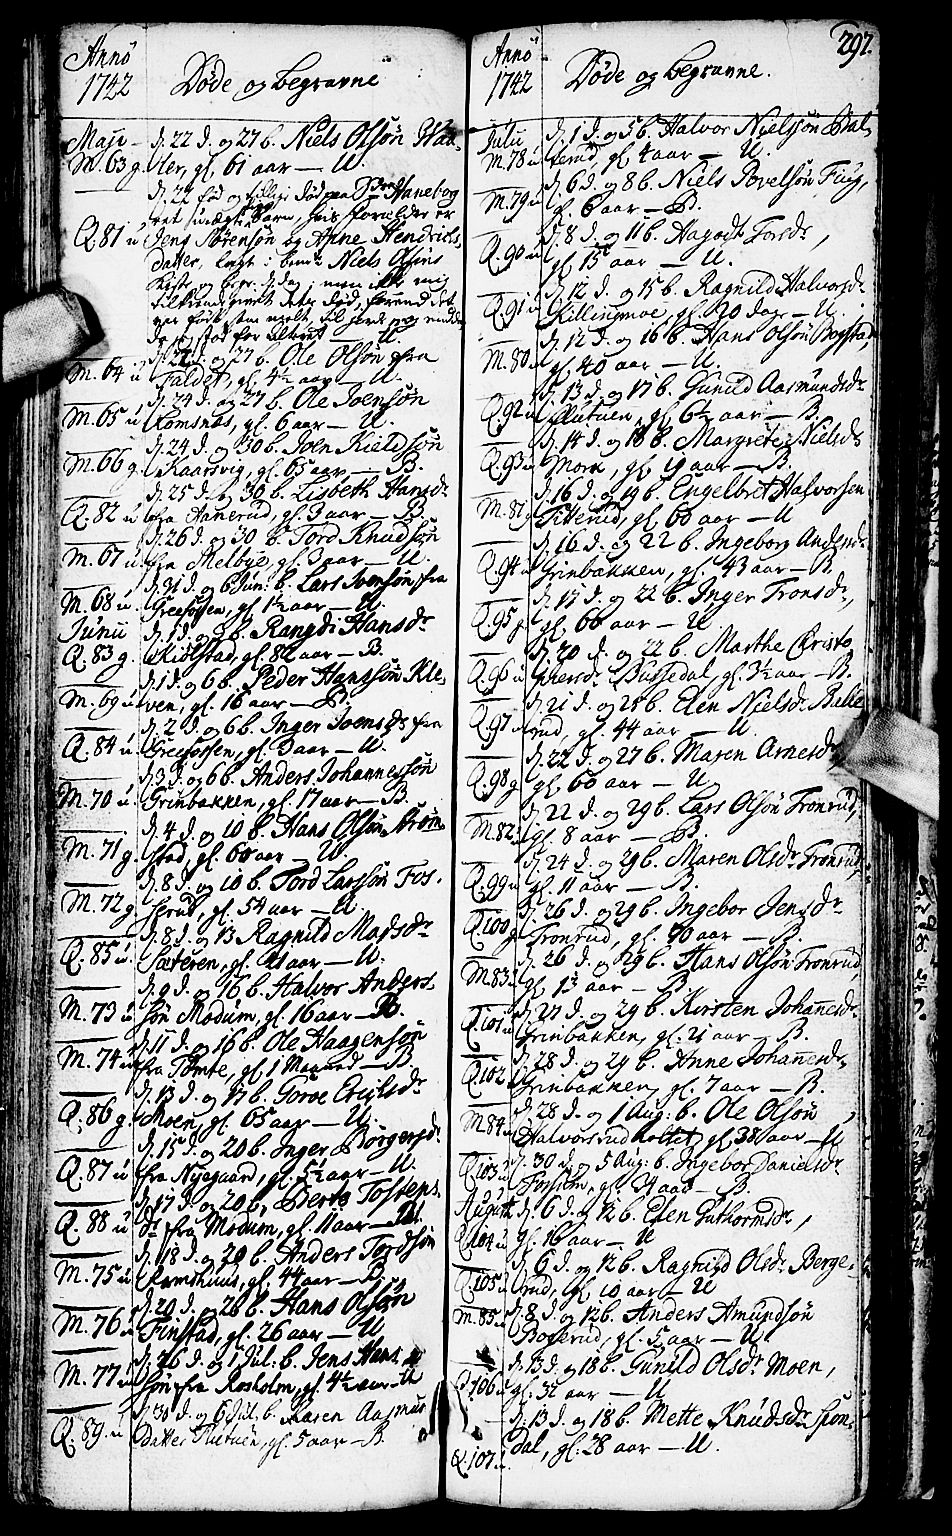 Anno
1742
Døde og begravne
Maji
d. 22 d. og 27 b. Niels Olsøn
M. 63 g. ler, gl. 61 aar — U.
d. 22 fød og
Q. 81 u
Jens Sørensøn og Anne Hendrichs
datter, lagt i Niels Olsøns
Kiste og begr. d. dag, men ikke mig
tilkiendegivet dets død, førend det
d. 22 d. og 27 b. Ole Olsøn fra
M. 64 u Faldet, gl. 4½ aar — U.
d. 24 d. og 27 b. Ole Joensøn
M. 65 u Komsnæs, gl. 6 aar — U.
d. 24 d. og 30 b. Joen Kieldsøn
M. 66 g. Kaarsvig, gl. 65 aar — B.
d. 25 d. og 30 b. Lisbeth Hansdr
Q. 82 u fra Aanerud, gl. 3 aar — B.
d. 26 d. og 30 b. Tord Knudsøn
M. 67 u fra Melbye, gl. 3 aar — U.
d. 31 d. og 6 Jun: b. Lars Svensøn fra
M. 68 u. Greefossen, gl. 1½ aar — U.
Junii
d. 1 d. og 6 b. Rangdi Hansdr
Q. 83 g. Kiølstad, gl. 82 aar — B.
d. 1 d. og 6 b. Peder Hanssøn Kle-
M. 69 u ven, gl. 16 aar — B.
d. 2 d. og 6 b. Inger Joensdr fra
Q. 84 u Greefossen, gl. 3 aar — U.
d. 3 d. og 6 b. Anders Johannessøn
M. 70 u. Grinbakken, gl. 17 aar — B.
d. 4 d. og 10 b. Hans Olsøn Strøm-
M. 71 g stad, gl. 60 aar — U.
d. 8 d. og 10 b. Tord Larssøn Fos-
M. 72 g serud, gl. 54 aar — U.
d. 8 d. og 13 Ragnild Madsdr
Q. 85 u. Sæteren, gl. 21 aar — U.
d. 9 d. og 16 b. Halvor Anders
M. 73 u søn Modum, gl. 16 aar — B.
d. 11 d. og 16 b. Ole Haagensøn
M. 74 u fra Tomte, gl. 1 Maaned — B.
d. 13 d. og 17 b. Torve Erichsdr
Q. 86 g Moen, gl. 65 aar — U.
d. 15 d. og 20 b. Inger Børgersdr
Q. 87 u fra Nyegaard, gl. 5½ aar — U.
d. 17 d. og 20 b. Berte Tostens
Q. 88 u dr fra Modum, gl. 11 aar — U.
d. 18 d. og 20 b. Anders Tordsøn
M. 75 u Ramshuus, gl. 44 aar — B.
d. 20 d. og 26 b. Hans Olsøn
M. 76 u Finstad, gl. 26 aar — U
d. 26 d. og 1 Jul: b. Jens Hans
M. 77 u søn fra Rosholm, gl. 4½ aar — U
d. 30 d. og 6 Jul. b. Karen Aasmus
Q. 89. u Datter Slutuen, gl. 5 aar — B.
297.
Anno
1742
Døde og begravne.
Julii d. 1 d. og 5 b. Halvor Nielssøn Bal-
M. 78 u kerud, gl. 4 aar — U.
d. 6 d. og 8 b. Niels Povelsøn Fiig,
M. 79 u gl. 6 aar — B.
d. 8 d. og 11 b. Aagodt Torsdr,
Q. 90 u gl. 15 aar — U.
d. 12 d. og 15 b. Ragnild Halvorsdr
Q. 91 u Killingmoe, gl. 20 dage — U.
d. 12 d. og 16 b. Hans Olsøn Bogstad
M. 80 gl. 40 aar — U.
d. 13 d. og 17 b. Gunild Aasmundsdr
Q. 92 u Slutuen, gl. 6½ aar — B.
d. 14 d. og 18 b. Margrete Nielsdr
Q. 93 u Morn, gl. 19 aar — B.
d. 16 d. og 19 b. Engelbret Halvorsen
M. 81 g Titterud, gl. 60 aar — U
d. 16 d. og 22 b. Ingeborg Andersdr
Q. 94 u Grinbakken, gl. 43 aar — B.
d. 17 d. og 22 b. Inger Tronsdr,
Q. 95 g gl. 66 aar — U.
d. 20 d. og 22 b. Marthe Christo
Q. 96 u phersdr Bussedal, gl. 3½ aar — B.
d. 21 d. og 25 b. Elen Nielsdr Balke
Q. 97 rud, gl. 44 aar — U
d. 22 d. og 27 b. Maren Arnesdr
Q. 98 g gl. 60 aar — U
d. 22 d. og 29 b. Lars Olsøn Tronrud,
M. 82 gl. 8 aar — B.
d. 24 d. og 29 b. Maren Olsdr Tronrud,
Q. 99 u gl. 11 aar — B.
d. 26 d. og 29 b. Ingebor Jensdr
Q. 100 g Tronrud, gl. 40 aar — B.
d. 26 d. og 29 b. Hans Olsøn Tronrud
M. 83 gl. 13 aar — B.
d. 27 d. og 29 b. Kirsten Johanesdr
Q. 101 u Grinbakken, gl. 21 aar — B.
d. 28 d. og 29 b. Anne Johanesdr
Q. 102 Grinbakken, gl. 7 aar — B.
d. 28 d. og 1 Aug: b. Ole Olsøn,
M. 84 u Halvorsrud koltet, gl. 38 aar — U
d. 30 d. og 5 Aug: b. Ingebor Danielsdr
Q. 103 Fossum, gl. 34 aar — B.
Augusti d. 6 d. og 12 b. Elen Guthormsdr,
Q. 104 u gl. 16 aar — U
d. 6 d. og 12 b. Ragnild Olsdr Berge-
Q. 105 u rud, gl. 10 aar — U
d. 8 d. og 12 b. Anders Amundsøn
M. 85 u Bogerud, gl. 5 aar — U
d. 13 d. og 18 b. Gunild Olsdr Moen,
Q. 106 u gl. 32 aar — U
d. 13 d. og 18 b. Mette Knudsdr Spon-
Q. 107 u. dal, gl. 28 aar — U.